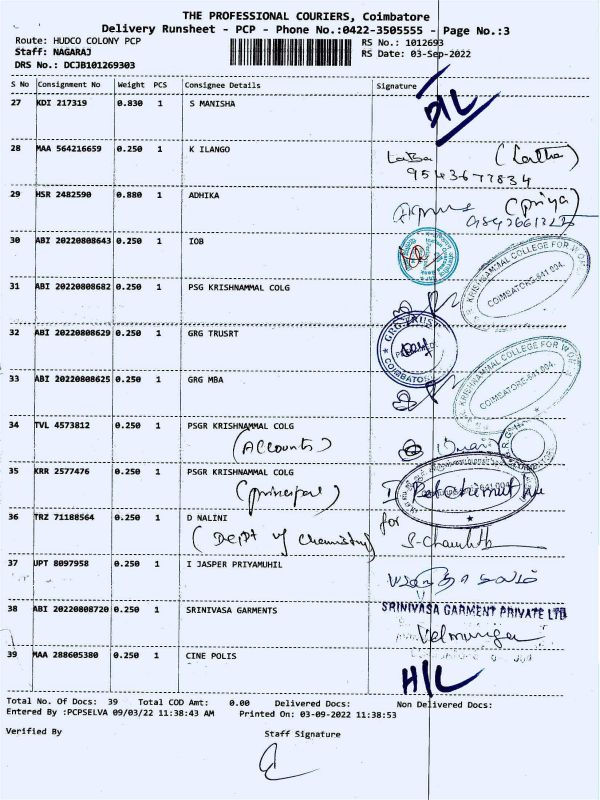 THE PROFESSIONAL COURIERS, Coimbatore
Delivery Runsheet - PCP - Phone No.:0422-3505555 - Page No.:3
Route: HUDCO COLONY PCP RS No.: 1012693
Staff: NAGARAJ RS Date: 03-Sep-2022
DRS No.: DCJB101269303
S No Consignment No Weight PCS Consignee Details Signature
27 KDI 217319 0.830 1 S MANISHA D/L
28 MAA 564216659 0.250 1 K ILANGO (Latha)
9543677834
29 HSR 2482590 0.880 1 ADHIKA (priya)
30 ABI 20220808643 0.250 1 IOB
31 ABI 20220808682 0.250 1 PSG KRISHNAMMAL COLG
KRISHNAMMAL COLLEGE FOR WOMEN
COIMBATORE-641 004.
32 ABI 20220808629 0.250 1 GRG TRUSRT
GRG TRUST
COIMBATORE
33 ABI 20220808625 0.250 1 GRG MBA
KRISHNAMMAL COLLEGE FOR WOMEN
COIMBATORE-641 004.
34 TVL 4573812 0.250 1 PSGR KRISHNAMMAL COLG
(Accounts)
35 KRR 2577476 0.250 1 PSGR KRISHNAMMAL COLG
(principal)
36 TRZ 71188564 0.250 1 D NALINI for
(Dept of chemistry)
37 UPT 8097958 0.250 1 I JASPER PRIYAMUHIL
38 ABI 20220808720 0.250 1 SRINIVASA GARMENTS SRINIVASA GARMENT PRIVATE LTD
Velmurugan
39 MAA 288605380 0.250 1 CINE POLIS H/L
Total No. Of Docs: 39 Total COD Amt: 0.00 Delivered Docs: Non Delivered Docs:
Entered By :PCPSELVA 09/03/22 11:38:43 AM Printed On: 03-09-2022 11:38:53
Verified By Staff Signature